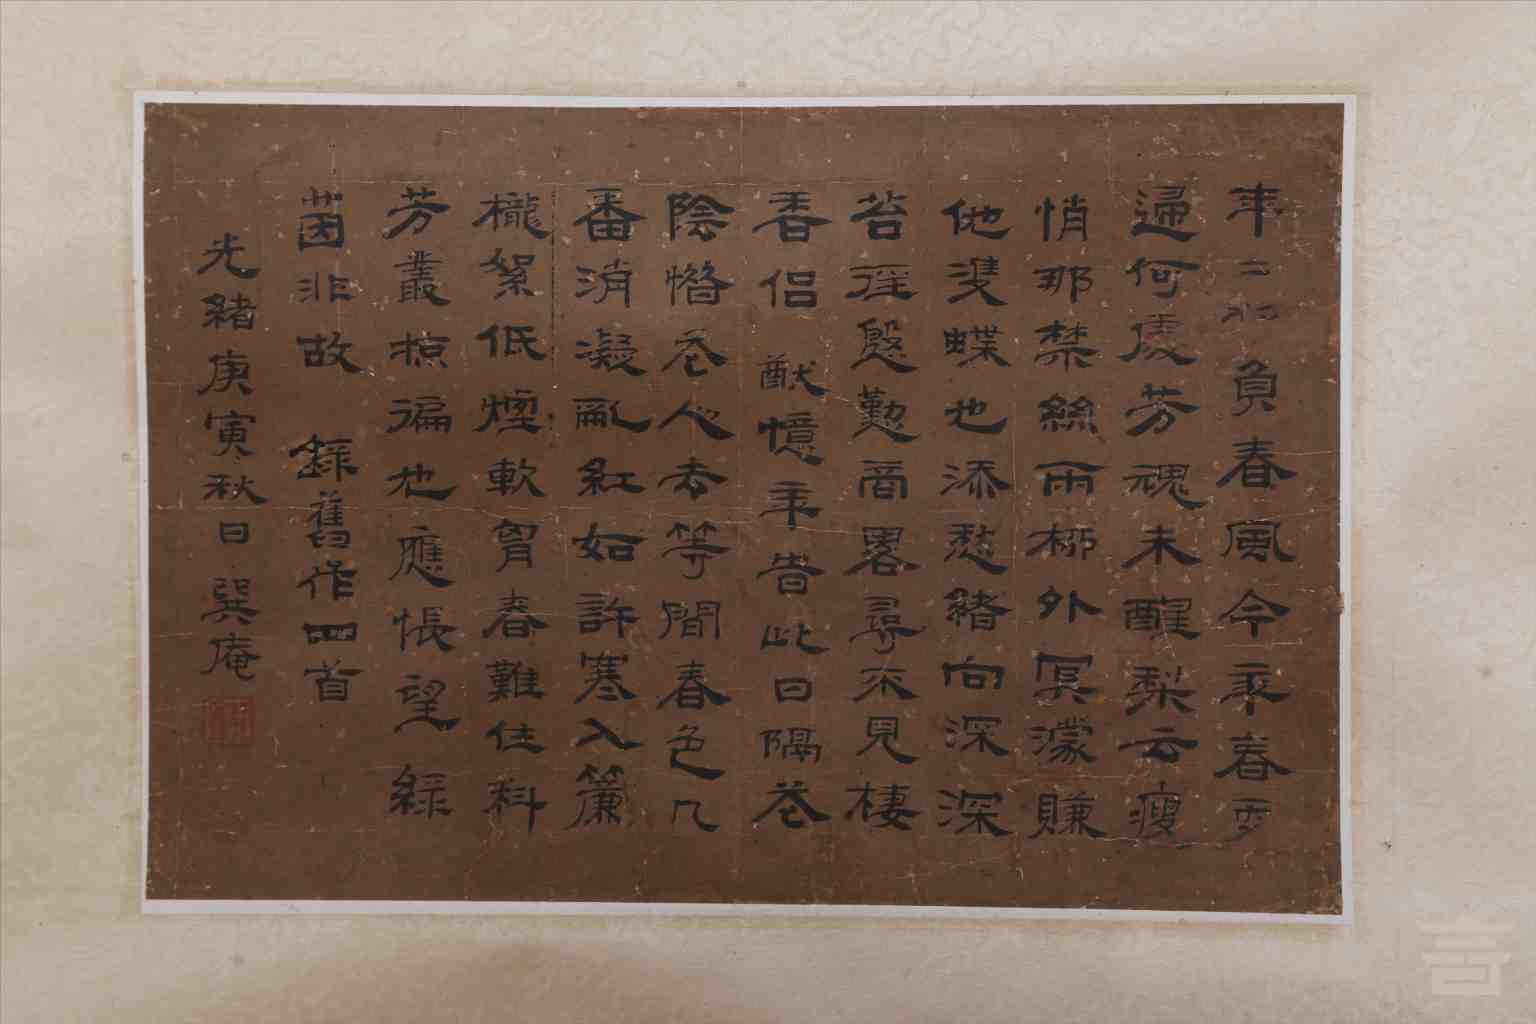 年二 負春風今來春雨
遍何處芳魂未醒梨云瘦
悄那禁絲雨柳外冥濛賺
他雙蝶也添愁緒向深深
苔徑慇懃商畧尋不見棲
香侶 猷憶年告此日隔花
陰惜花人去等閒春色几
番消凝亂紅如許寒入簾
櫳絮低煙軟窅春難住料
芳叢掠遍也應悵望綠
茵非故 錄舊作四首
光緒庚寅秋日 巽庵